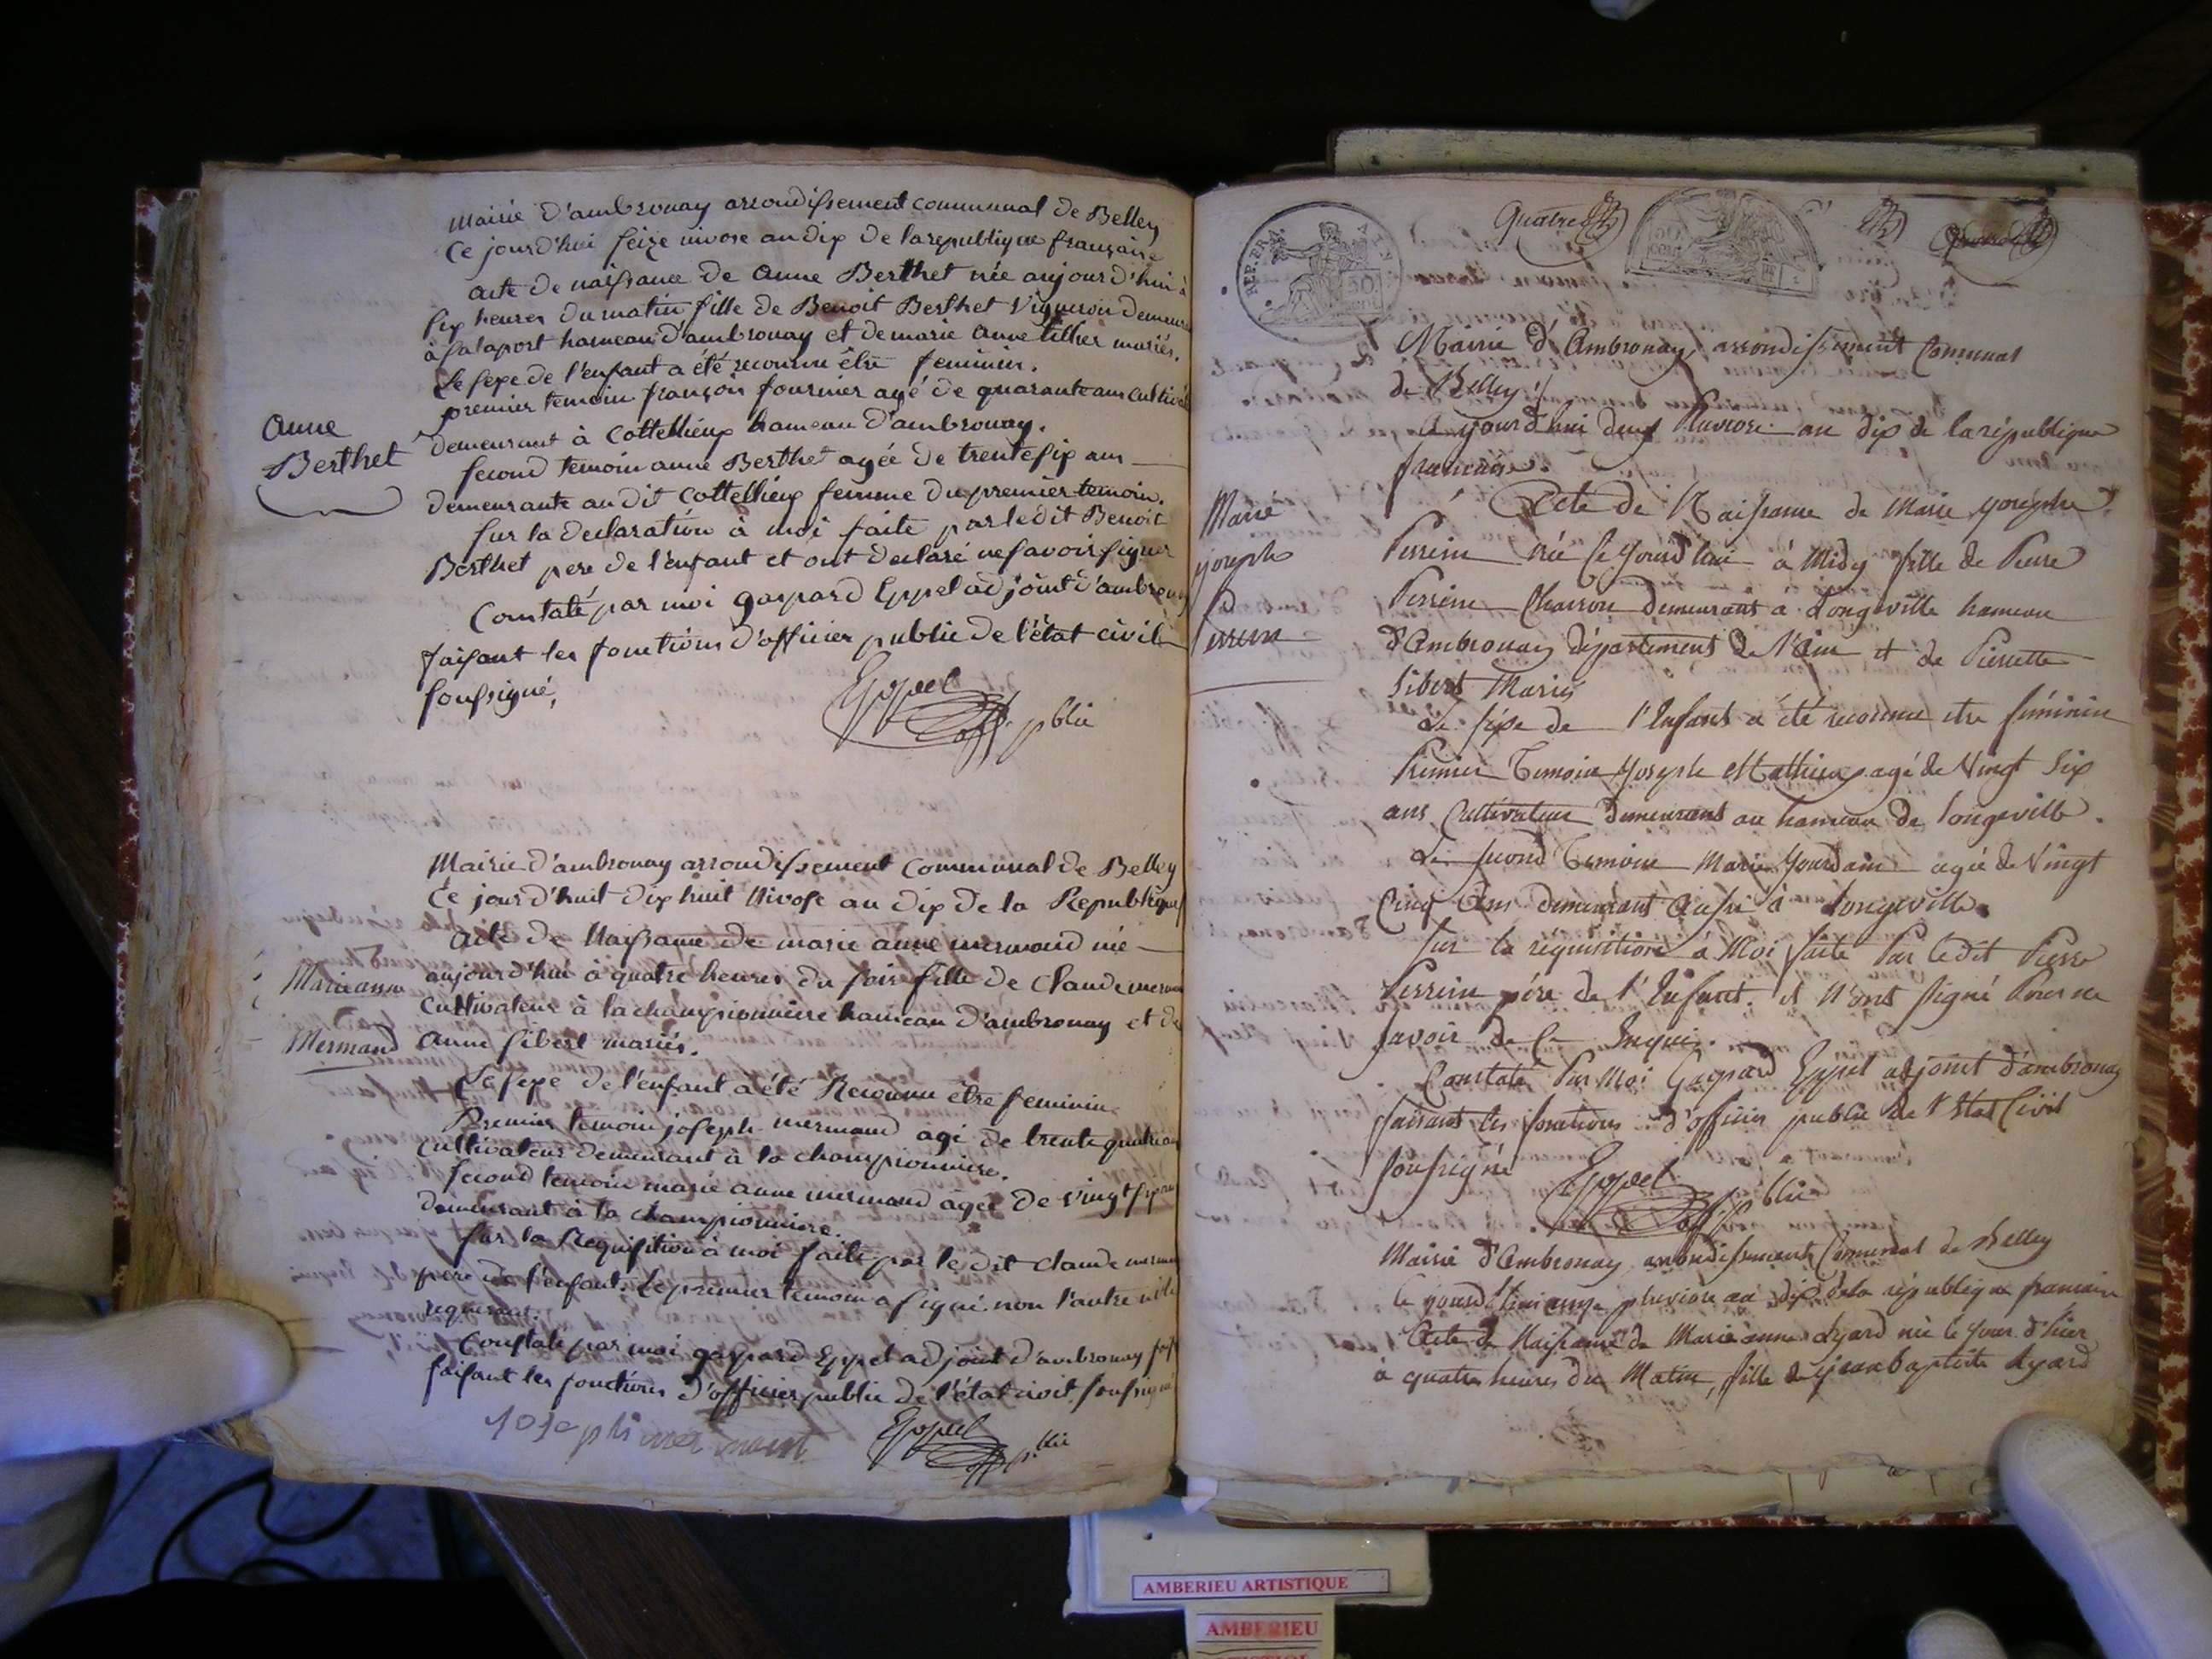 Mairie d'ambronay arrondissement communal de Belley
Ce jourd'hui seize nivose an dix de la republique française
acte de naissance de Anne Berthet née aujourd'hui à
six heures du matin fille de Benoit Berthet Vigneron demeura
à Salaport hameau d'ambronay et de marie Anne tillier mariés.
Le sexe de l'enfant a été reconnu être feminin.
premier temoin françois fournier agé de quarante ans cultiva
demeurant à Cottellieux hameau d'ambronay.
Anne
Berthet
second temoin anne Berthet agée de trente six ans
demeurante au dit Cottellieux femme du premier temoin.
sur la declaration à moi faite par ledit Benoit
Berthet pere de l'enfant et ont declaré ne savoir signer
Constaté par moi gaspard Eppel adjoint d'ambronay
faisant les fonctions d'officier public de l'état civil
soussigné,
Eppel
off. pblic
Mairie d'ambronay arrondissement Communal de Belley
Ce jourd'huit dix huit Nivose an dix de la Republique
Acte de Naissance de marie anne mermand née
Marieanne
Mermand
aujourd'hui à quatre heures du soir fille de Claude merm
cultivateur à la championniere hameau d'ambronay et de
Anne sibert mariés.
Le sexe de l'enfant à été Reconnu être feminin
Premier temoin joseph mermand agé de trente quatre an
cultivateur demeurant à la championniere.
second temoin marie anne mermand agée de vingt six an
demeurant à la championniere.
sur la Requisition à moi faite par le dit Claude merm
pere de l'enfant. Le premier temoin a signé non l'autre
requerant.
Constaté par moi gaspard Eppel adjoint d'ambronay
faisant les fonctions d'officier public de l'état civil soussigné
joseph mermant
Eppel
off. pblic
Quatre
REP. FRA
50
CENT
Mairie d'Ambronay, arrondissement Communal
de Belley
Ajourd'hui deux Pluviose an dix de la république
francaise.
Marie
joseph
Perrin
Acte de Naissance de Marie yosephe
Perrin née ce jourd'hui à Midy fille de Pierre
Perrin Charron demeurant à Longeville hameau
d'Ambronay département de l'Ain et de Pierrette
Sibert Mariés
Le sexe de l'Enfant a été reconnu etre féminin
Premier Temoin yoseph Mathieu agé de Vingt Six
ans Cultivateur demeurant au hameau de Longeville.
Le second Temoin Marie Jourdain agée de Vingt
Cinq Ans demeurant Aussi à Longeville.
Sur la requisition à Moi faite Par ledit Pierre
Perrin pére de l'Enfant. et N'ont signé Pour ne
savoir de Ce Enquis.
Constaté Par Moi Gaspard Eppel adjoint d'ambronay
faisant les fonctions d'officier public de l'Etat Civil
soussigné
Eppel
off. pblic
Mairie d'Ambronay arrondissement Communal de Belley
Ce jourd'hui onze pluviose an dix de la république francaise
Acte de Naissance de Marie anne dyard née le jour d'hier
à quatre heures du Matin, fille de jean baptiste dyard
AMBERIEU ARTISTIQUE
AMBERIEU